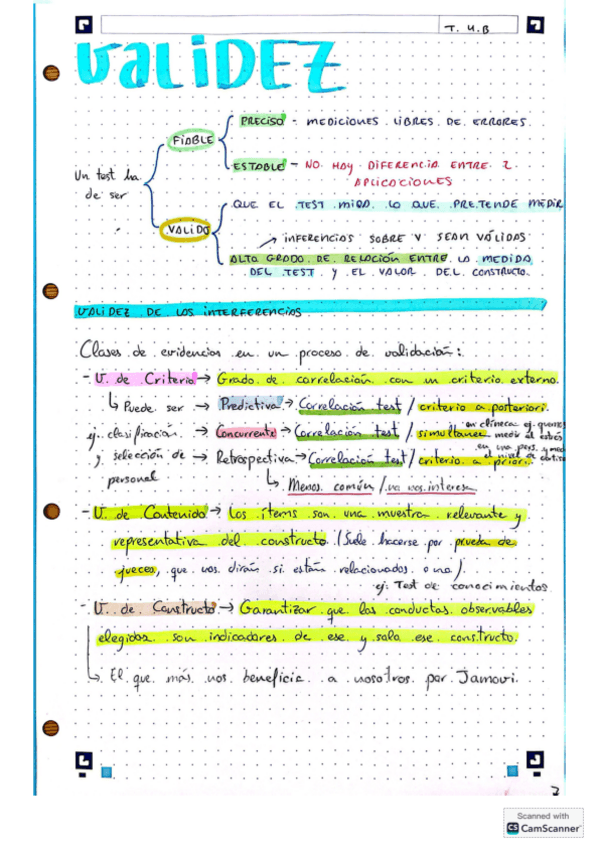 T. 4.B
VALIDEZ
Un test ha
de ser
FIABLE
PRECISO - MEDICIONES LIBRES DE ERRORES.
ESTABLE - NO HAY DIFERENCIA ENTRE 2
APLICACIONES
VALIDO
QUE EL TEST MIDA LO QUE PRETENDE MEDIR
→ INFERENCIAS SOBRE V SEAN VÁLIDAS
ALTO GRADO DE RELACIÓN ENTRE LA MEDIDA
DEL TEST Y EL VALOR DEL CONSTRUCTO.
VALIDEZ DE LOS INTERFERENCIAS
Clases de evidencias en un proceso de validación:
- V. de Criterio → Grado de correlación con un criterio externo.
↳ Puede ser → Predictiva → Correlación test / criterio a posteriori.
ej. clasificación → Concurrente → Correlación test / simultanea
en clínica ej. 
medir el estrés
en una pers. y med
el nivel de
y selección de → Retrospectiva → Correlación test / criterio a priori.
personal
↳ Menos común / no nos interesa
- V. de Contenido → Los ítems son una muestra relevante y
representativa del constructo (Suele hacerse por prueba de
jueces, que nos dirán si están relacionados o no).
ej: Test de conocimientos
- V. de Constructo → Garantizar que las conductas observables
elegidas son indicadores de ese y solo ese constructo.
↳ El que más nos beneficia a nosotros por Jamovi.
7
Scanned with
CS CamScanner